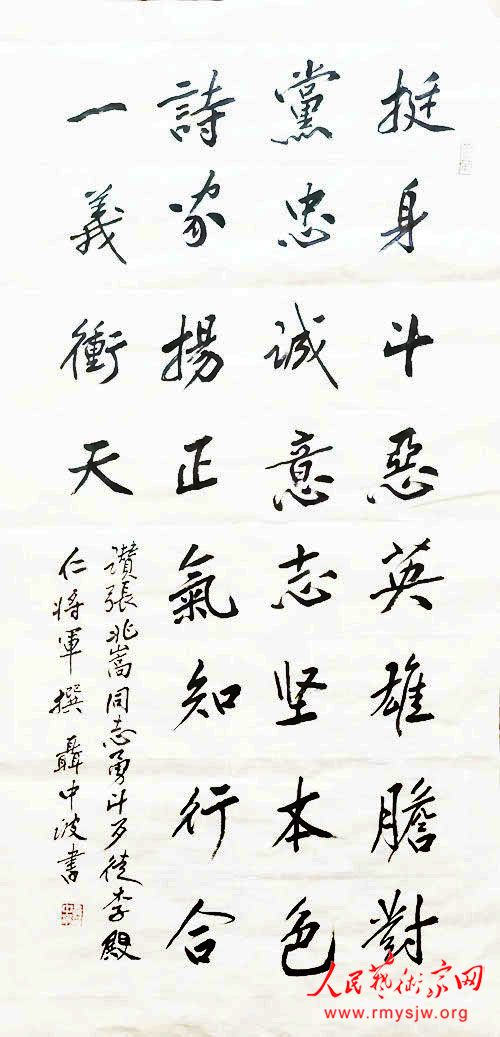 挺身斗惡英雄膽對
黨忠诚意志坚本色
詩家揚正氣知行合
一義衝天
讚張兆嵩同志勇斗歹徒李殿
仁将軍撰聶中波書
人民藝術家网
www.rmysjw.org